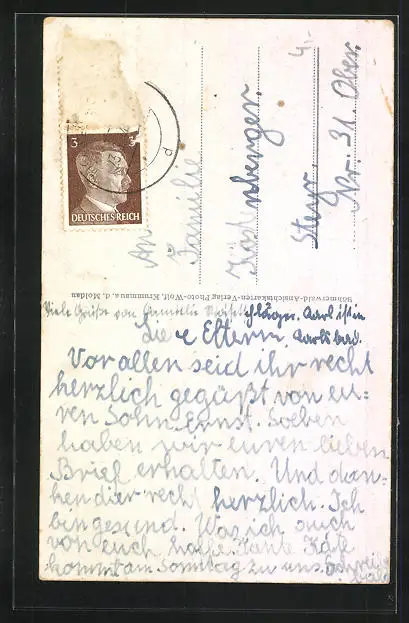 4.-
3
3
DEUTSCHES REICH
An
Familie
Ködenberger.
Steyr.
Nr. 31. Ober.
Böhmerwald-Ansichtskarten-Verlag Photo-Wolf, Krummau a. d. Moldau
Viele Grüße von Familie Karl ist in
Karlsbad.
Lie e Eltern,
Vor allen seid ihr recht
herzlich gegüßt von eu=
ren Sohn Ernst. Soeben
haben wir euren lieben
Brief erhalten. Und dan=
ken dier recht herzlich. Ich
bin gesund. Was ich auch
von euch hoffe. Tante
kommt am Sonntag zu uns